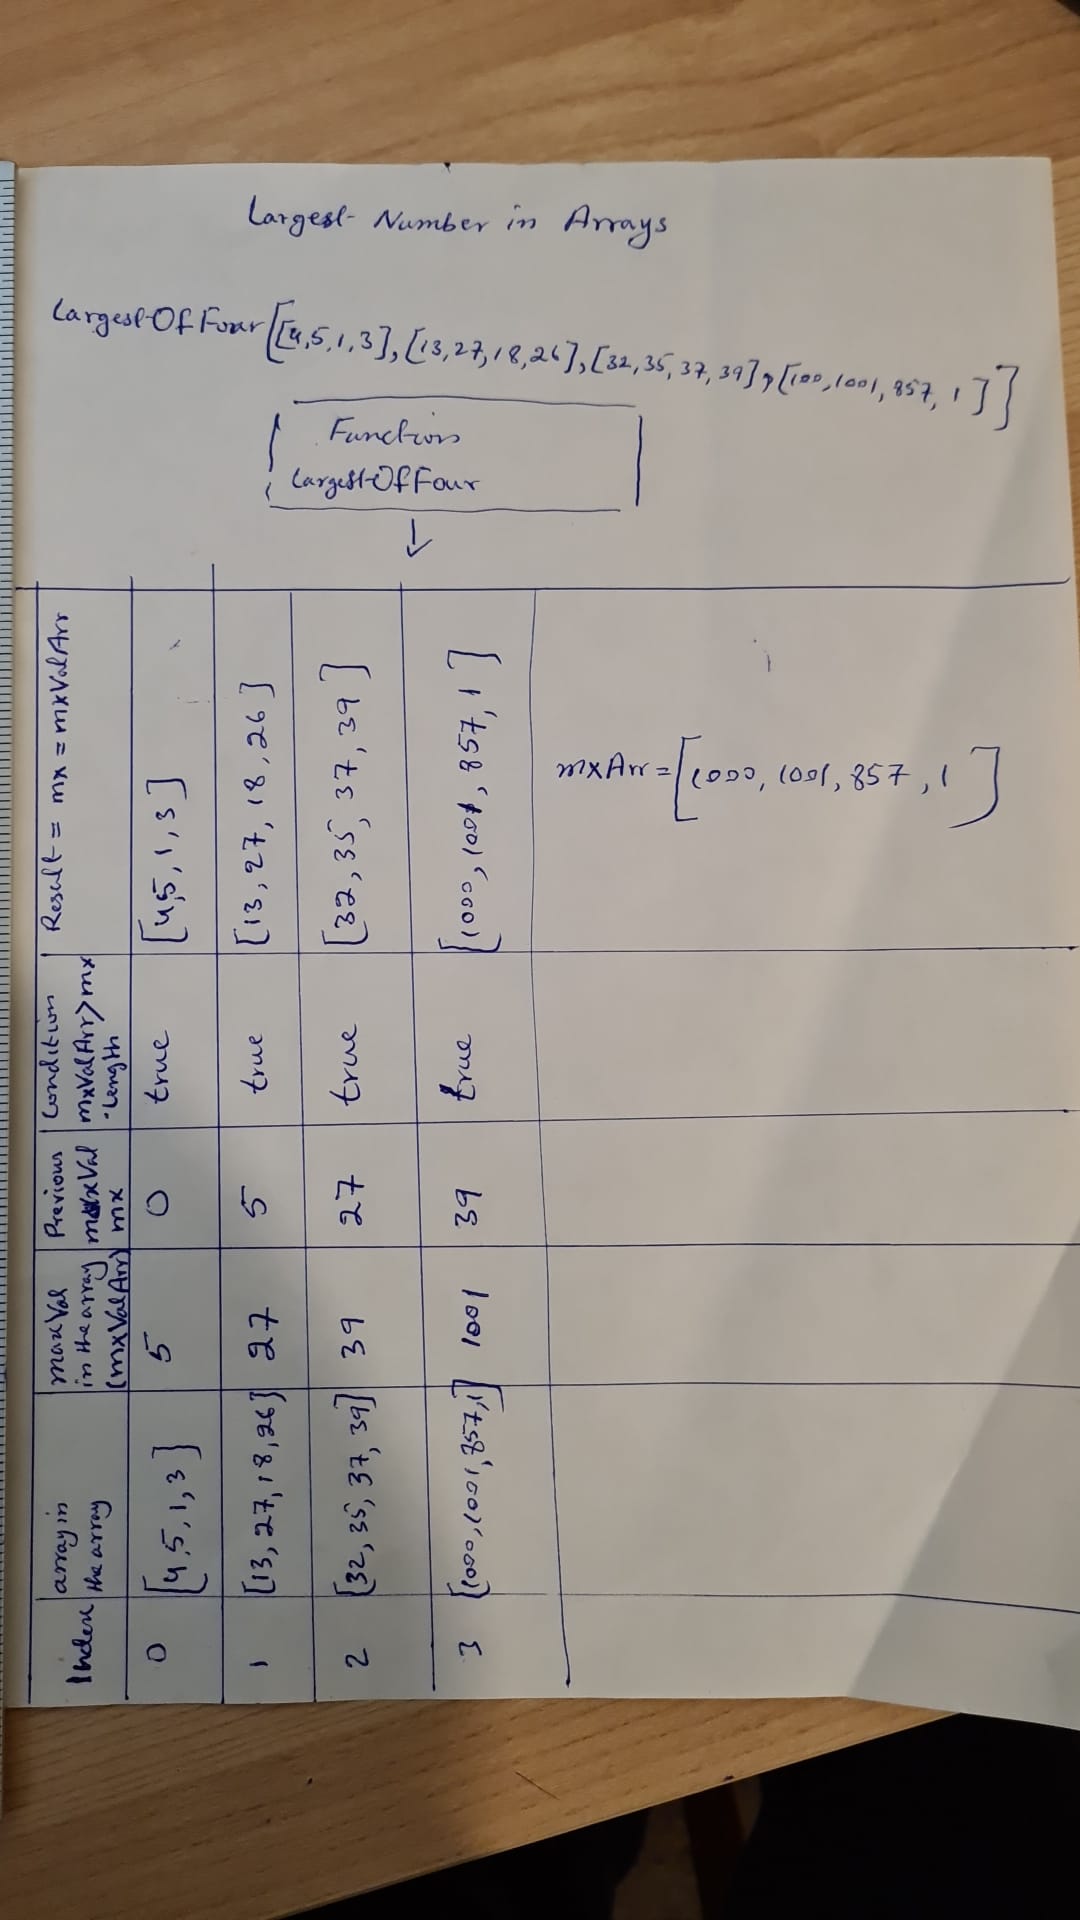 Largest Number in Arrays
LargestOfFour[[4,5,1,3],[13,27,18,26],[32,35,37,39],[100,1001,857,1]]
Function
LargestOfFour
↓
Index
array in
the array
maxVal
in the array
(mxValArr)
Previous
maxVal
mx
Condition
mxValArr>mx
.length
Result = mx = mxValArr
0 [4,5,1,3] 5 0 true [4,5,1,3]
1 [13,27,18,26] 27 5 true [13,27,18,26]
2 [32,35,37,39] 39 27 true [32,35,37,39]
3 [1000,1001,857,1] 1001 39 true [1000,1001,857,1]
mxArr=[1000,1001,857,1]